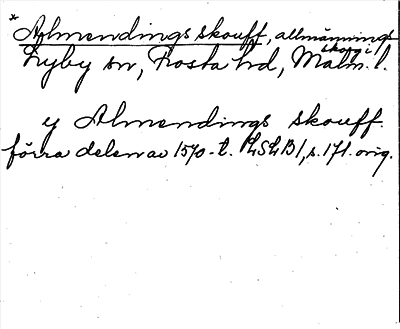 *Almendings skouff, allmännings
skog i
Lyby sn, Frosta hd, Malm. l.
ej Almendings skouff.
förra delen av 1570-t. LSLB1, s. 171. orig.